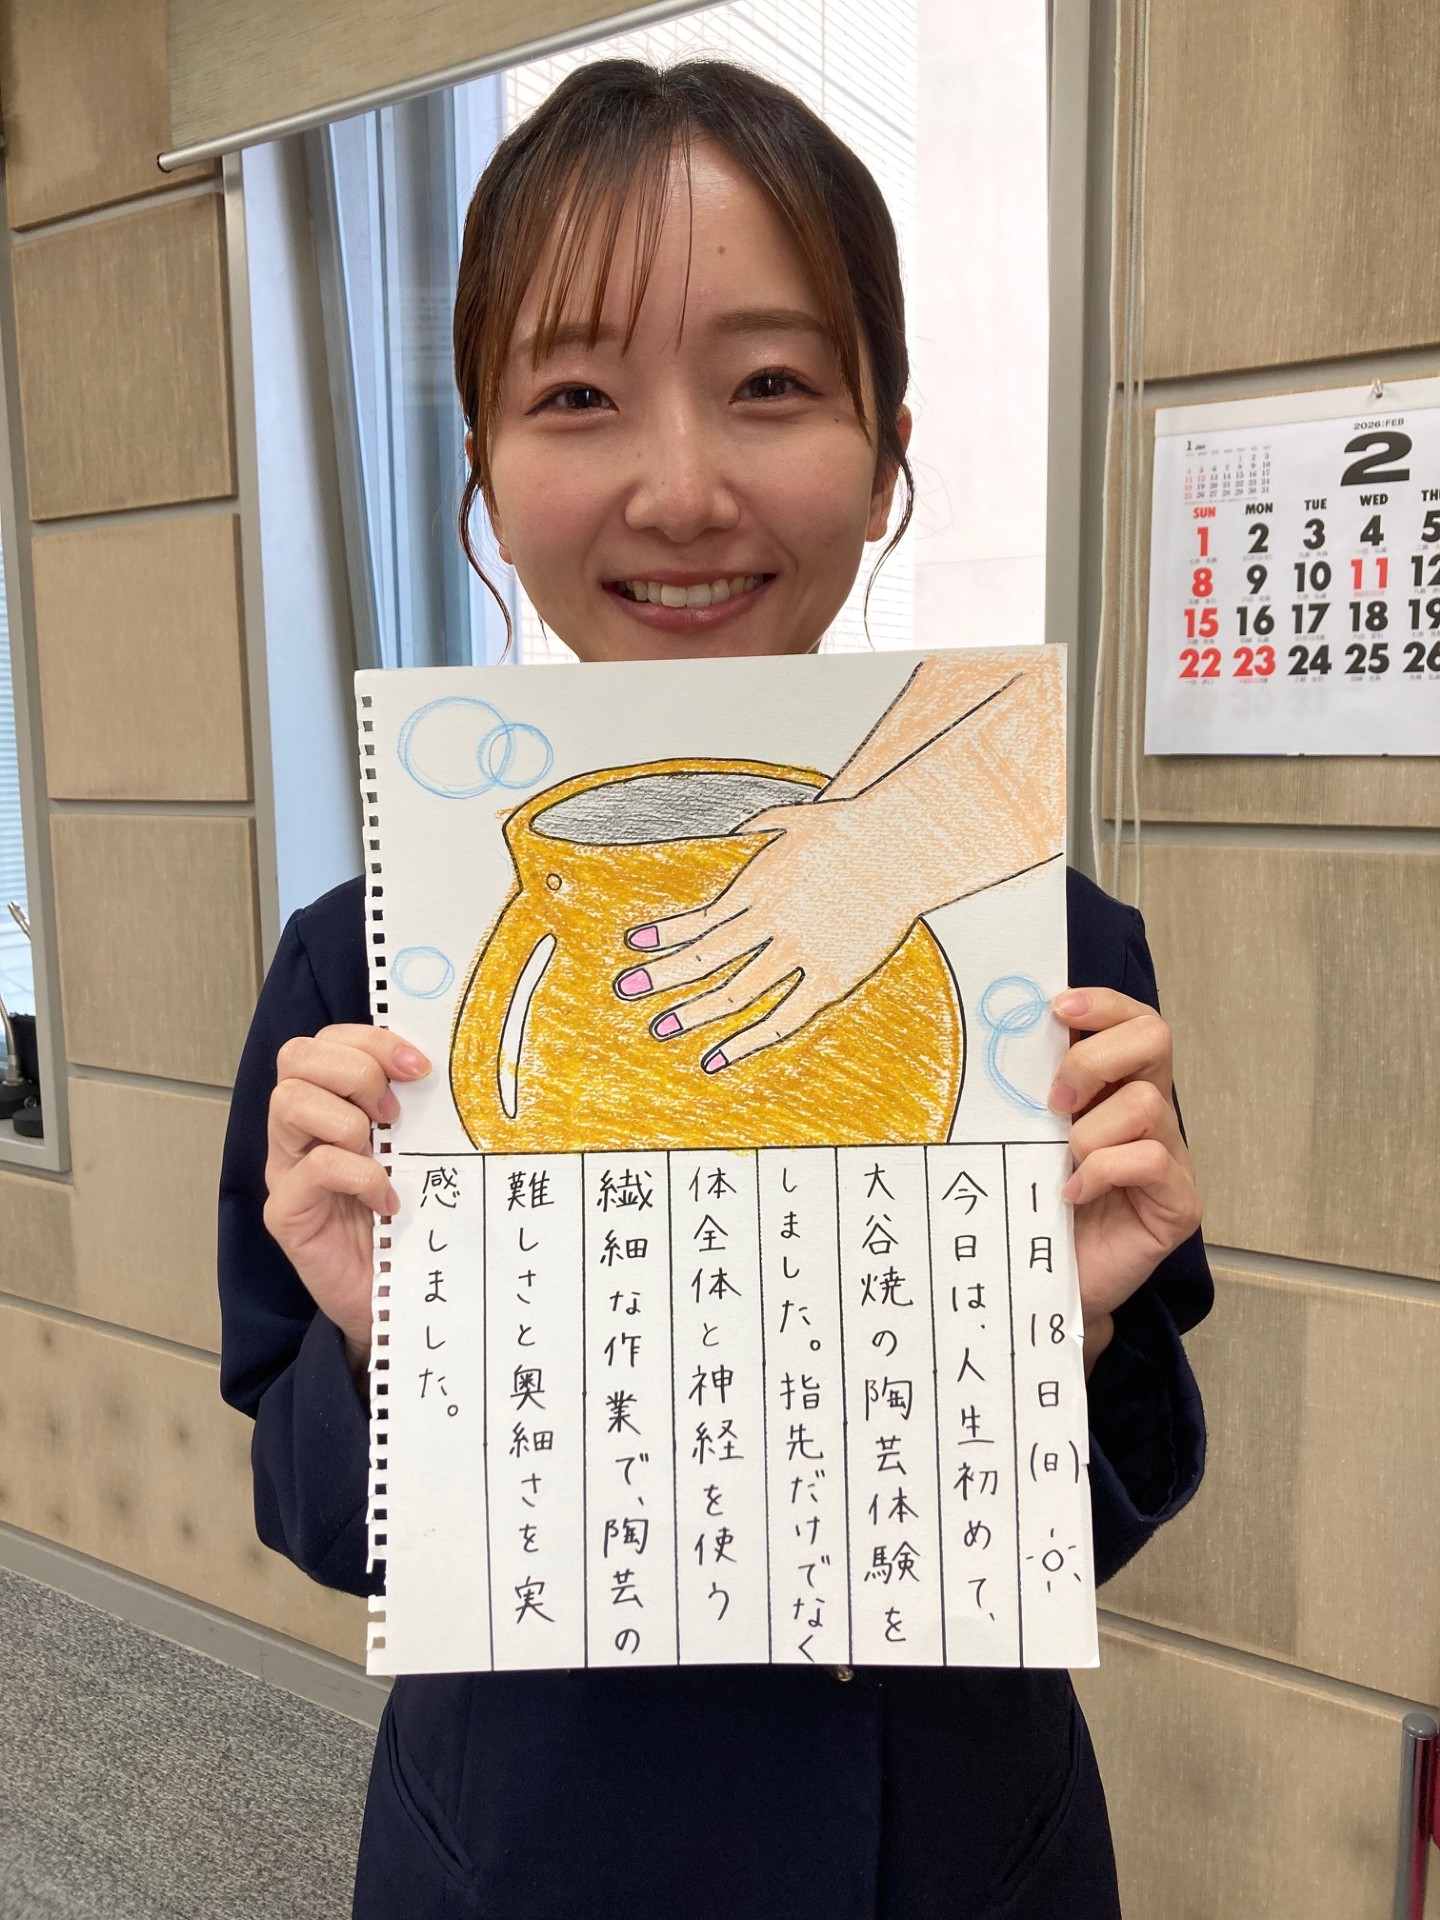 1月18日(日)
今日は、人生初めて、
大谷焼の陶芸体験を
しました。指先だけでなく
体全体と神経を使う
繊細な作業で、陶芸の
難しさと奥細さを実
感しました。
2026:FEB
2
1 JAN
SUN MON TUE WED
1 2 3 4 5
8 9 10 11 12
15 16 17 18 19
22 23 24 25 26